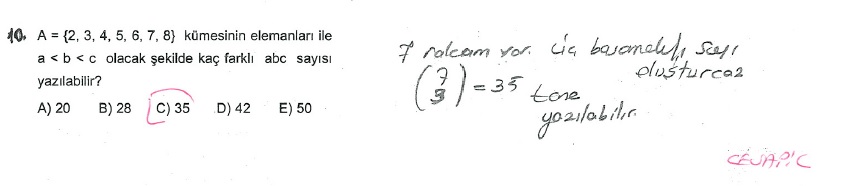 10. A = {2, 3, 4, 5, 6, 7, 8} kümesinin elemanları ile
a < b < c olacak şekilde kaç farklı abc sayısı
yazılabilir?
A) 20 B) 28 C) 35 D) 42 E) 50
7 rakam var. Üç basamaklı sayı
oluşturcaz
(7 3) = 35 tane
yazılabilir.
CEVAP:C